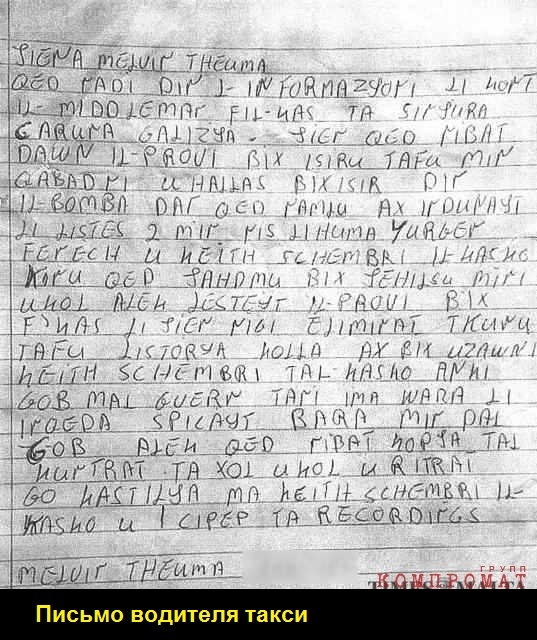 JIENA MELVIN THEUMA
QED NADI DIN L-INFORMAZYONI LI KONT
IL-MIDDLEMAN FIL-KAS TA SINJURA
CARUNA GALIZYA. JIEN QED NIBAT
DAWN IL-PROVI BIX ISIRU TAFU MIN
QABADNI U HALLAS BIX ISIR DIN
IL-BOMBA DAN QED NAMLU AX INDUNAYT
LI LISTES 2 MIN NIS LI HUMA YURGEN
FENECH U KEITH SCHEMBRI IL-KASKO
KINU QED JAHDMU BIX JEHILSU MINI
U KOL ALEK LESTEYT IL-PROVI BIX
F'KAS LI JIEN NIGI ELIMINAT TKUNU
TAFU LISTORYA KOLLA AX BIX UZAWNI
KEITH SCHEMBRI TAL-KASKO ANKI
GOB MAL GVERN TANI IMA WARA LI
INQEDA SPICAYT BARA MIN DAL
GOB ALEK QED NIBAT KOPJA TAL
KUNTRAT TA XOL U KOL U RITRAT
GO KASTILYA MA KEITH SCHEMBRI IL-
KASKO U 1 CIPEP TA RECORDINGS
MELVIN THEUMA
ГРУПП
КОМПРОМАТ
TIMES OF MALTA
Письмо водителя такси